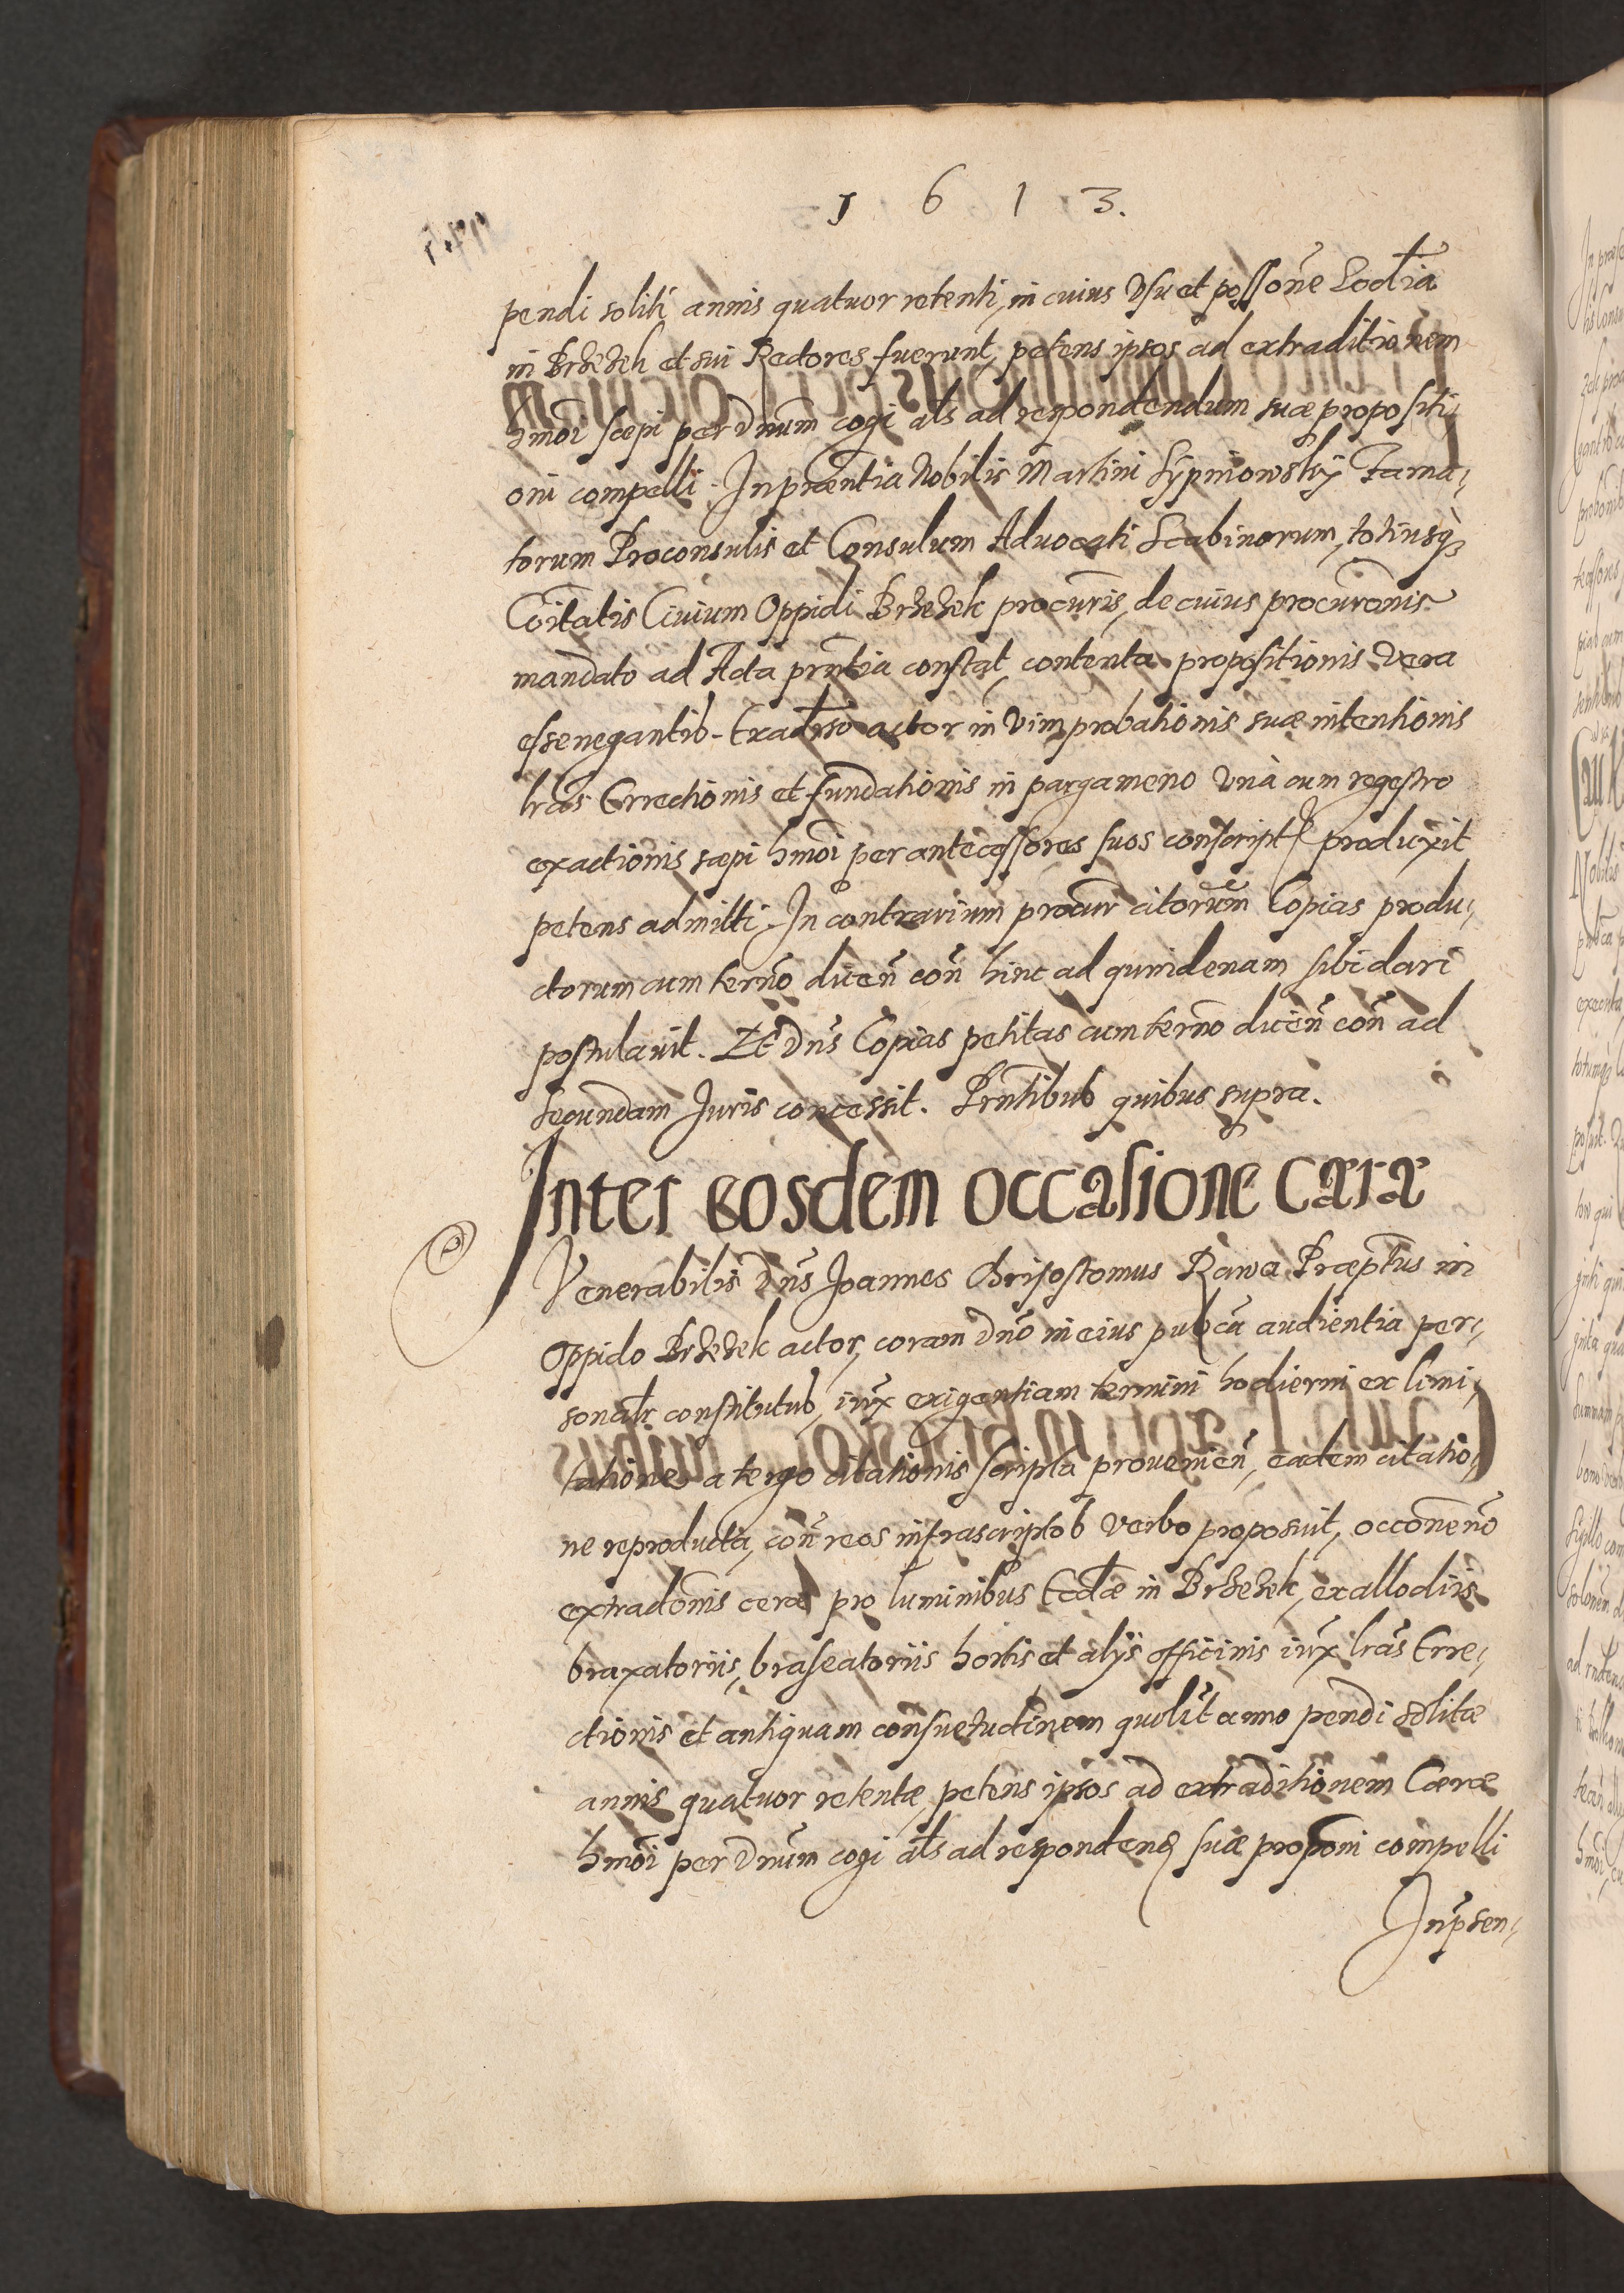 1 6 1 3.
pendi soliti annis quatuor retenti, in cuius Vsu et possõne Eccl̃ia
in Brzezek et sui Rectores fuerunt, petens ipsos ad extraditionem
hmõi sæpi per Dnũm cogi al̃s ad respondendum suæ propositi,
oni compelli. In præntia Nobilis Martini Sypniowskÿ Fama,
torum Proconsulis et Consulum Aduocati Scabinorum, totiusq̀3
Cõitatis Ciuium Oppidi Brzezek procuris̃, de cuius procurõnis
mandato ad Acta prñtia constat, contenta propositionis Vera
esse negantib. Ex aduerso actor in Vim probationis suæ intentionis
lrãs Errectionis et fundationis in pargameno Vnà cum regestro
exactionis sæpi hmõi per antecessores suos conscript produxit
petens admitti. In contrarium procur citorum̃ Copias produ,
ctorum cum termño dicen̄ con̄ hinc ad quindenam sibi dari
postulauit. Et Dñs Copias petitas cum termño dicen̄ con̄ ad
secundam Iuris concessit. Prñtibus quibus supra.
Inter eosdem occasione cæræ
Venerabilis Dñs Joannes Chrisostomus Rawa Præptus in
Oppido Brzezek actor, coram Dnõ in eius publcã audientia per,
sonalr constitutus, iux̃ exigentiam termini hodierni ex limi,
tatione a tergo citationis scripta prouenien̄, eadem citatio,
ne reproducta, con̄ reos infrascriptos Verbo proposuit, occõne nõ
extradõnis ceræ pro luminibus Eccl̃æ in Brzezek, ex allodiis
braxatoriis, braseatoriis hortis et alÿs officinis iux̃ lrãs Erre,
ctionis et antiquam consuetudinem quolĩt anno pendi solitæ
annis quatuor retentæ, petens ipsos ad extraditionem Cæræ
hmõi per Dnũm cogi al̃s ad respondend suæ propõni compelli
In p̃sen,